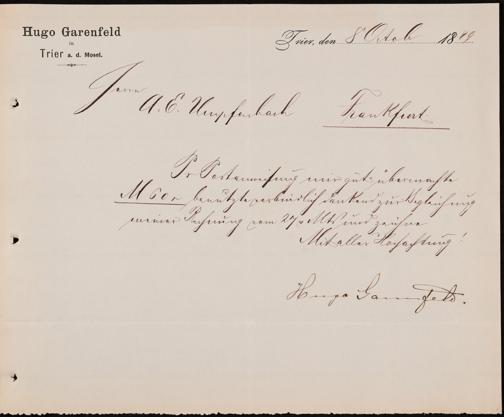 Hugo Garenfeld
in
Trier a. d. Mosel.
Trier, den 8 Octob 1889
Herrn
A. E. Umpfenbach Frankfurt
Pr Postanweisung mir gütigst übermachte
M 60.- benutzte verbindlich dankend zur Begleichung
meiner Rechnung vom 27. v. Mts und zeichne
Mit aller Hochachtung!
Hugo Garenfeld.